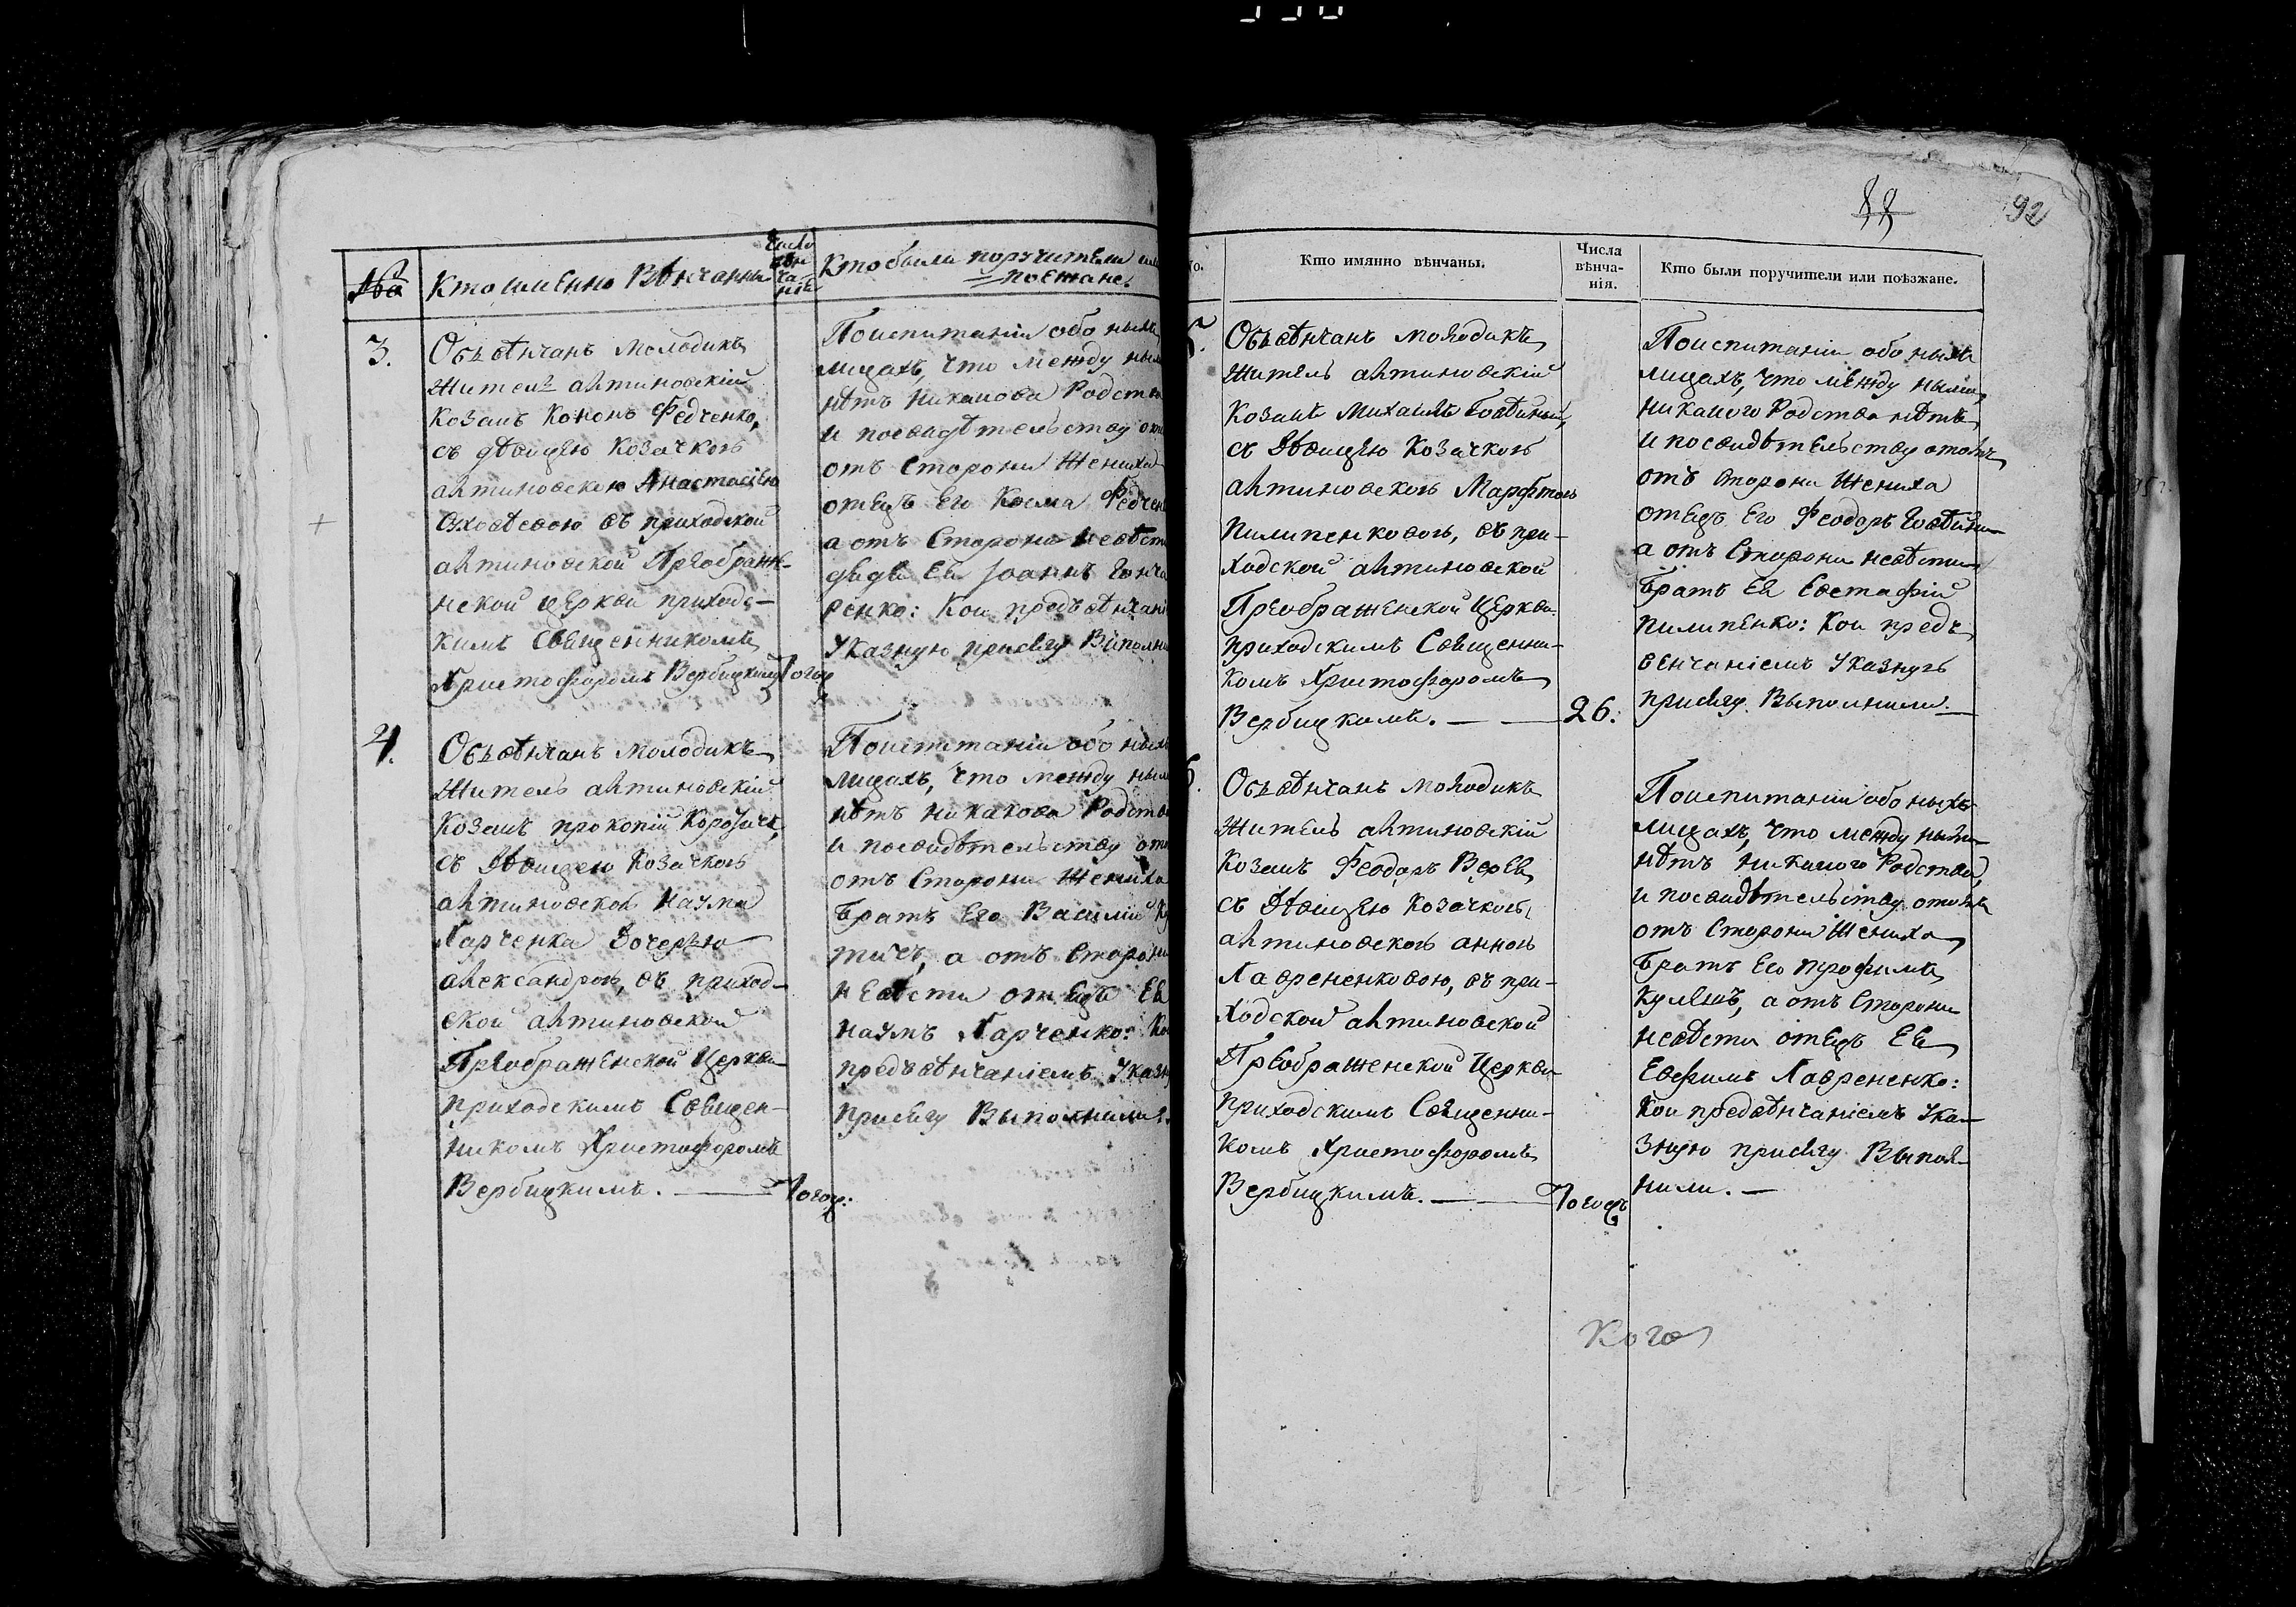 №
Кто именно Вѣнчаны
Число
вѣн
ча-
нія
Кто были поручители или
поезжане.
3.
Обвѣнчанъ молодикъ
житель алтиновскій
козакъ Кононъ Федченко,
съ дѣвицею козачкою
алтиновскою Анастасіею
въ приходской
алтиновской Преображе-
нской церкви приходс-
кимъ Священникомъ
Христофоромъ Вербицкимъ
Того
По испитаніи обо ныхъ
лицахъ, что между ными
нѣтъ никакова Родства
и по свидѣтельству
отъ Сторони Жениха
отецъ Его Косма Федчен
а отъ Сторони невѣсти
дядя Ея Іоаннъ Гонча
ренко: Кои предъ вѣнчані
Указную присягу Виполни
4.
Обвѣнчанъ молодикъ
Житель алтиновскій
Козакъ прокопій
съ Дѣвицею Козачкою
алтиновскою Наума
Харченка Дочерью
александрою, въ приход-
ской алтиновской
Преображенской Церкви
приходскимъ Священ-
никомъ Христофоромъ
Вербицкимъ.
Того
По испитаніи обо ныхъ
лицахъ, что между ными
нѣтъ никакова Родства
и по свидѣтельству
отъ Сторони Жениха
братъ Его Василій
тичъ, а отъ Сторони
невѣсти отецъ Ея
Наумъ Харченко: Кои
предъ вѣнчаніемъ Указн
присягу Выполнили.
88
92
No.
Кто имянно вѣнчаны.
Числа
вѣнча-
нія.
Кто были поручители или поѣзжане.
5.
Обвѣнчанъ молодикъ
житель алтиновскій
козакъ Михаилъ
съ Дѣвицею Козачкою
алтиновскою Марфою
Пилипенковою, въ при-
ходской алтиновской
Преображенской Церкви
приходскимъ Священни-
комъ Христофоромъ
Вербицкимъ.
26.
По испитаніи обо ныхъ
лицахъ, что между ными
никакого Родства нѣтъ
и по свидѣтельству
отъ Сторони Жениха
отецъ Его Феодоръ
а отъ Сторони невѣсти
братъ Ея Евстафій
Пилипенко: Кои предъ
венчаніемъ Указную
присягу Выполнили.
6.
Обвѣнчанъ молодикъ
Житель алтиновскій
Козакъ Феодоръ
съ Дѣвицею Козачкою
алтиновскою анною
Лаврененковою, въ при-
ходской алтиновской
Преображенской Церкви
приходскимъ Священни-
комъ Христофоромъ
Вербицкимъ.
Того
По испитаніи обо ныхъ
лицахъ, что между ными
нѣтъ никакого Родства,
и по свидѣтельству
отъ Сторони Жениха
братъ Его
а отъ Сторони
невѣсти отецъ Ея
Евфимъ Лаврененко:
Кои предъ вѣнчаніемъ Ука-
зную присягу Выпол-
нили.